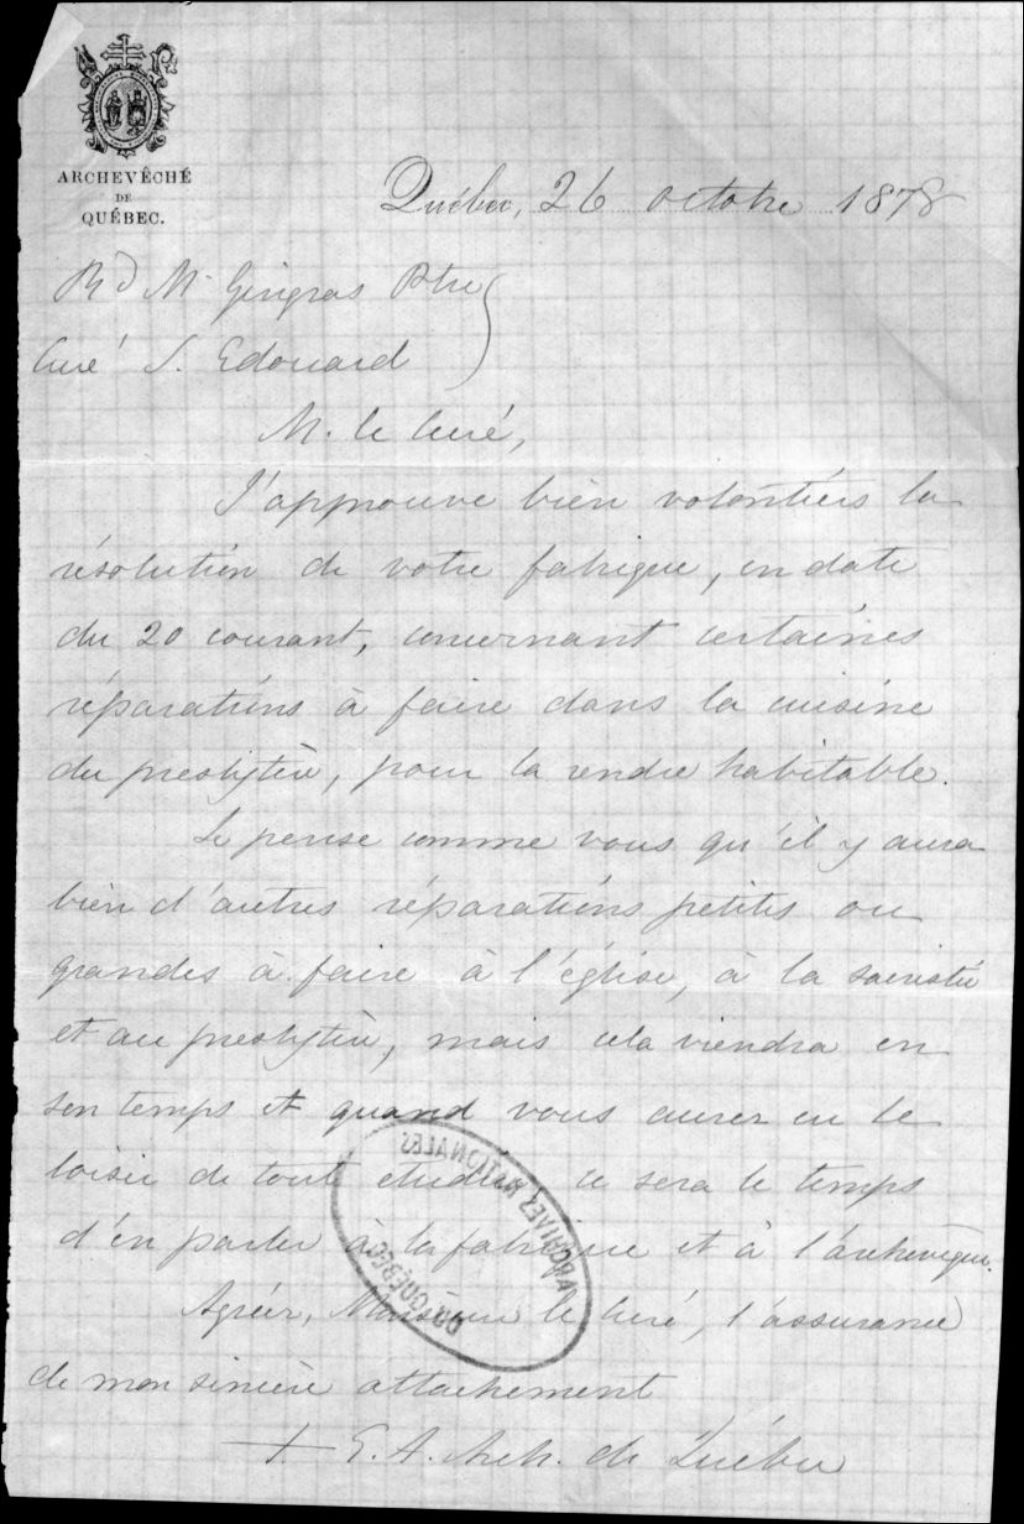 ARCHEVÊCHÉ
DE
QUÉBEC.
Québec, 26 octobre 1878
Rd M. Gingras Ptre
Curé S. Edouard
M. le Curé,
J'approuve bien volontiers la
résolution de votre fabrique, en date
du 20 courant, concernant certaines
réparations à faire dans la cuisine
du presbytère, pour la rendre habitable.
Je pense comme vous qu'il y aura
bien d'autres réparations petites ou
grandes à faire à l'église, à la sacristie
et au presbytère, mais cela viendra en
son temps et quand vous aurez eu le
loisir de tout étudier, ce sera le temps
d'en parler à la fabrique et à l'archevêque.
Agréez, Monsieur le Curé, l'assurance
de mon sincère attachement
+ E. A. Arch. de Québec
ARCHIVES NATIONALES
DU QUÉBEC